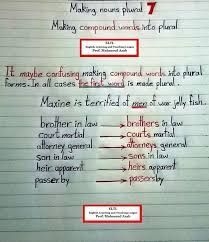 Making nouns plural 7
Making compound words into plural
ELTL
English Learning and Teaching Logos
Prof. Mohamed Arab
It maybe confusing making compound words into plural
forms. In all cases the first word is made plural.
Maxine is terrified of men of war jelly fish.
brother in law brothers in law
court martial courts martial
attorney general attorneys general
son in law sons in law
heir apparent heirs apparent
passer by passers by
ELTL
English Learning and Teaching Logos
Prof. Mohamed Arab